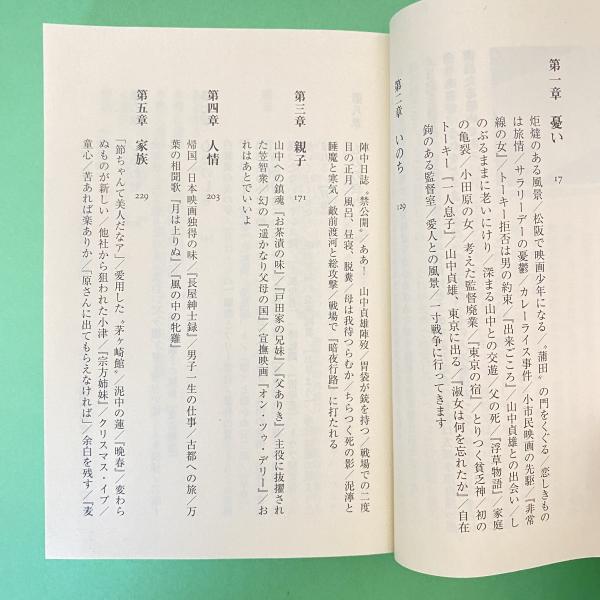 第一章 憂い 17
炬燵のある風景／松阪で映画少年になる／〝蒲田〟の門をくぐる／恋しきもの
は旅情／サラリーデーの憂鬱／カレーライス事件／小市民映画の先駆／『非常
線の女』／トーキー拒否は男の約束／『出来ごころ』／山中貞雄との出会い／し
のぶるままに老いにけり／深まる山中との交遊／父の死／『浮草物語』／家庭
の亀裂／小田原の女／考えた監督廃業／『東京の宿』／とりつく貧乏神／初の
トーキー『一人息子』／山中貞雄、東京に出る／『淑女は何を忘れたか』／自在
鉤のある監督室／愛人との風景／一寸戦争に行ってきます
第二章 いのち 129
陣中日誌〝禁公開〟／ああ！ 山中貞雄陣歿／胃袋が銃を持つ／戦場での二度
目の正月／風呂、昼寝、脱糞／母は我待つらむか／ちらつく死の影／泥濘と
睡魔と寒気／敵前渡河と総攻撃／戦場で『暗夜行路』に打たれる
第三章 親子 171
山中への鎮魂『お茶漬の味』／『戸田家の兄妹』／『父ありき』／主役に抜擢され
た笠智衆／幻の『遥かなり父母の国』／宣撫映画『オン・ツゥ・デリー』／お
れはあとでいいよ
第四章 人情 203
帰国／日本映画独得の味／『長屋紳士録』／男子一生の仕事／古都への旅／万
葉の相聞歌『月は上りぬ』／『風の中の牝雞』
第五章 家族 229
「節ちゃんて美人だなア」／愛用した〝茅ヶ崎館〟／泥中の蓮／『晩春』／変わら
ぬものが新しい／他社から狙われた小津／『宗方姉妹』／クリスマス・イブ／
童心／苦あれば楽ありか／「原さんに出てもらえなければ」／余白を残す／『麦